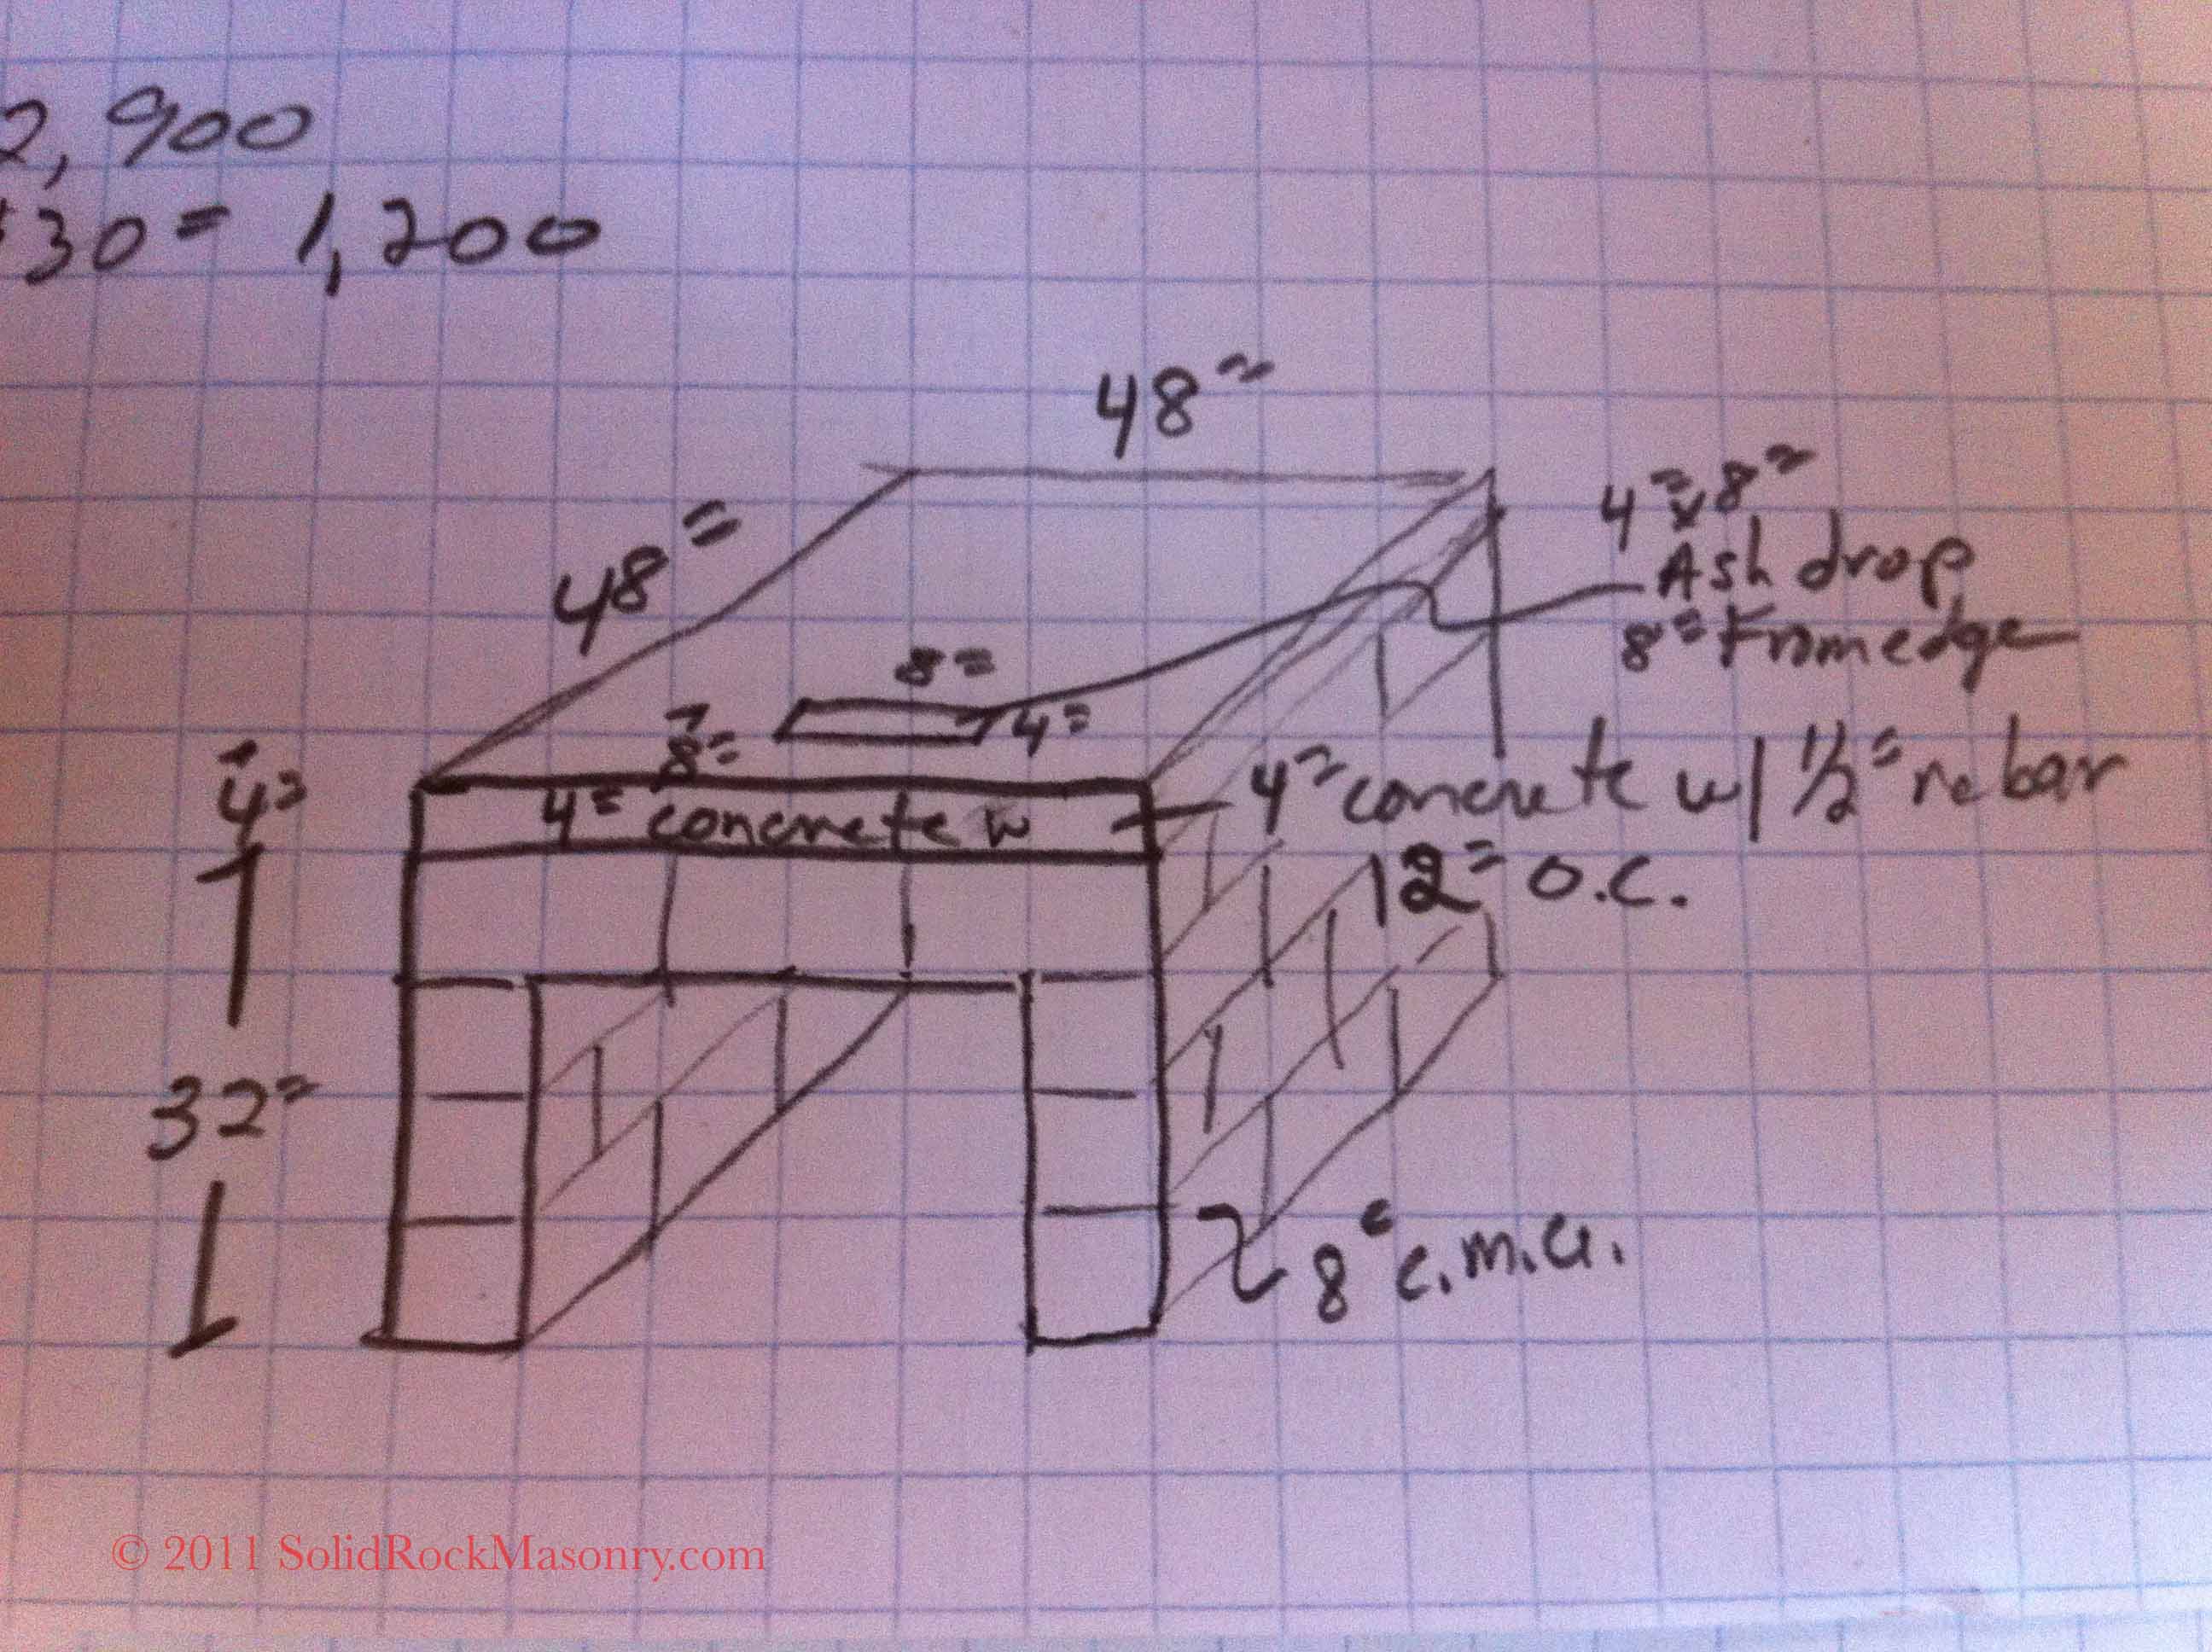 2,900
$30 = 1,200
48"
48"
4" x 8"
Ash drop
8" From edge
8"
8"
4"
4"
4" concrete w
4" concrete w/ 1/2" rebar
12" o.c.
32"
8" c.m.u.
© 2011 SolidRockMasonry.com